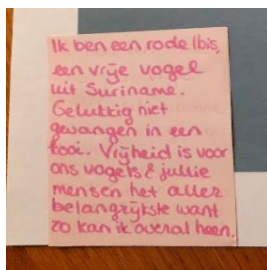 Ik ben een rode Ibis,
een vrije vogel
uit Suriname.
Gelukkig niet
gevangen in een
kooi. Vrijheid is voor
ons vogels & jullie
mensen het aller
belangrijkste want
zo kan ik overal heen.